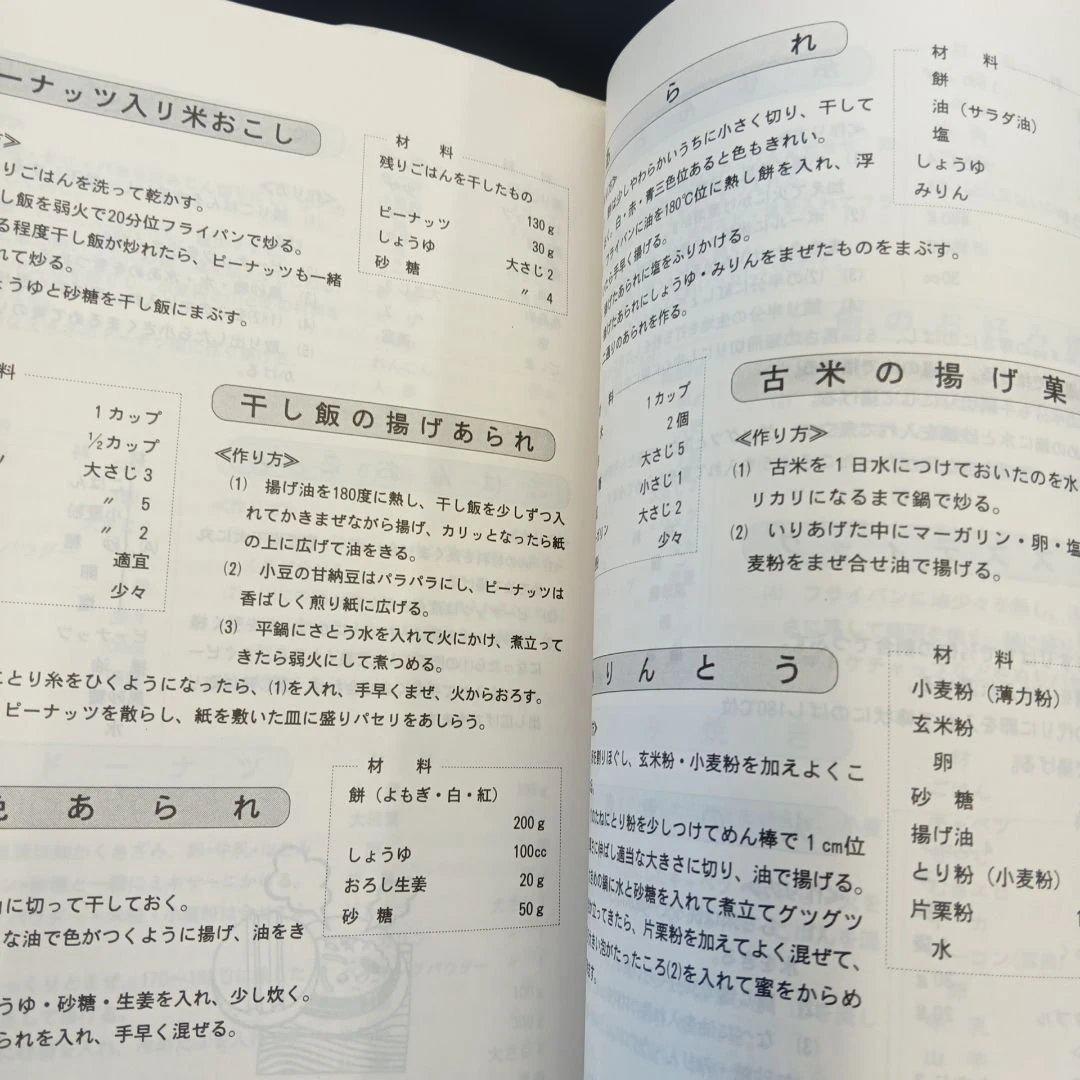 ーナッツ入り米おこし
りごはんを洗って乾かす。
し飯を弱火で20分位フライパンで炒る。
る程度干し飯が炒れたら、ピーナッツも一緒
れて炒る。
ょうゆと砂糖を干し飯にまぶす。
材　料
残りごはんを干したもの
130g
ピーナッツ　30g
しょうゆ　大さじ2
砂　糖　〃 4
料
1カップ
½カップ
大さじ3
〃 5
〃 2
適宜
少々
干し飯の揚げあられ
≪作り方≫
(1)　揚げ油を180度に熱し、干し飯を少しずつ入
れてかきまぜながら揚げ、カリッとなったら紙
の上に広げて油をきる。
(2)　小豆の甘納豆はパラパラにし、ピーナッツは
香ばしく煎り紙に広げる。
(3)　平鍋にさとう水を入れて火にかけ、煮立って
きたら弱火にして煮つめる。
にとり糸をひくようになったら、(1)を入れ、手早くまぜ、火からおろす。
ピーナッツを散らし、紙を敷いた皿に盛りパセリをあしらう。
色あられ
材　料
餅（よもぎ・白・紅）
200g
しょうゆ　100cc
おろし生姜　20g
砂　糖　50g
に切って干しておく。
な油で色がつくように揚げ、油をき
うゆ・砂糖・生姜を入れ、少し炊く。
られを入れ、手早く混ぜる。
られ
は少しやわらかいうちに小さく切り、干して
く、白・赤・青三色位あると色もきれい。
フライパンに油を180℃位に熱し餅を入れ、浮
たら手早く揚げる。
揚げたあられに塩をふりかける。
揚げたあられにしょうゆ・みりんをまぜたものをまぶす。
通りのあられを作る。
材　料
餅
油（サラダ油）
塩
しょうゆ
みりん
料
1カップ
2個
大さじ5
小さじ1
大さじ2
少々
古米の揚げ菓
≪作り方≫
(1)　古米を1日水につけておいたのを水
リカリになるまで鍋で炒る。
(2)　いりあげた中にマーガリン・卵・塩
麦粉をまぜ合せ油で揚げる。
りんとう
割りほぐし、玄米粉・小麦粉を加えよくこ
のたねにとり粉を少しつけてめん棒で1cm位
に伸ばし適当な大きさに切り、油で揚げる。
きめの鍋に水と砂糖を入れて煮立てグツグツ
立ってきたら、片栗粉を加えてよく混ぜて、
きい泡がたったころ(2)を入れて蜜をからめ
す。
材　料
小麦粉（薄力粉）
玄米粉
卵
砂　糖
揚げ油
とり粉（小麦粉）
片栗粉
水